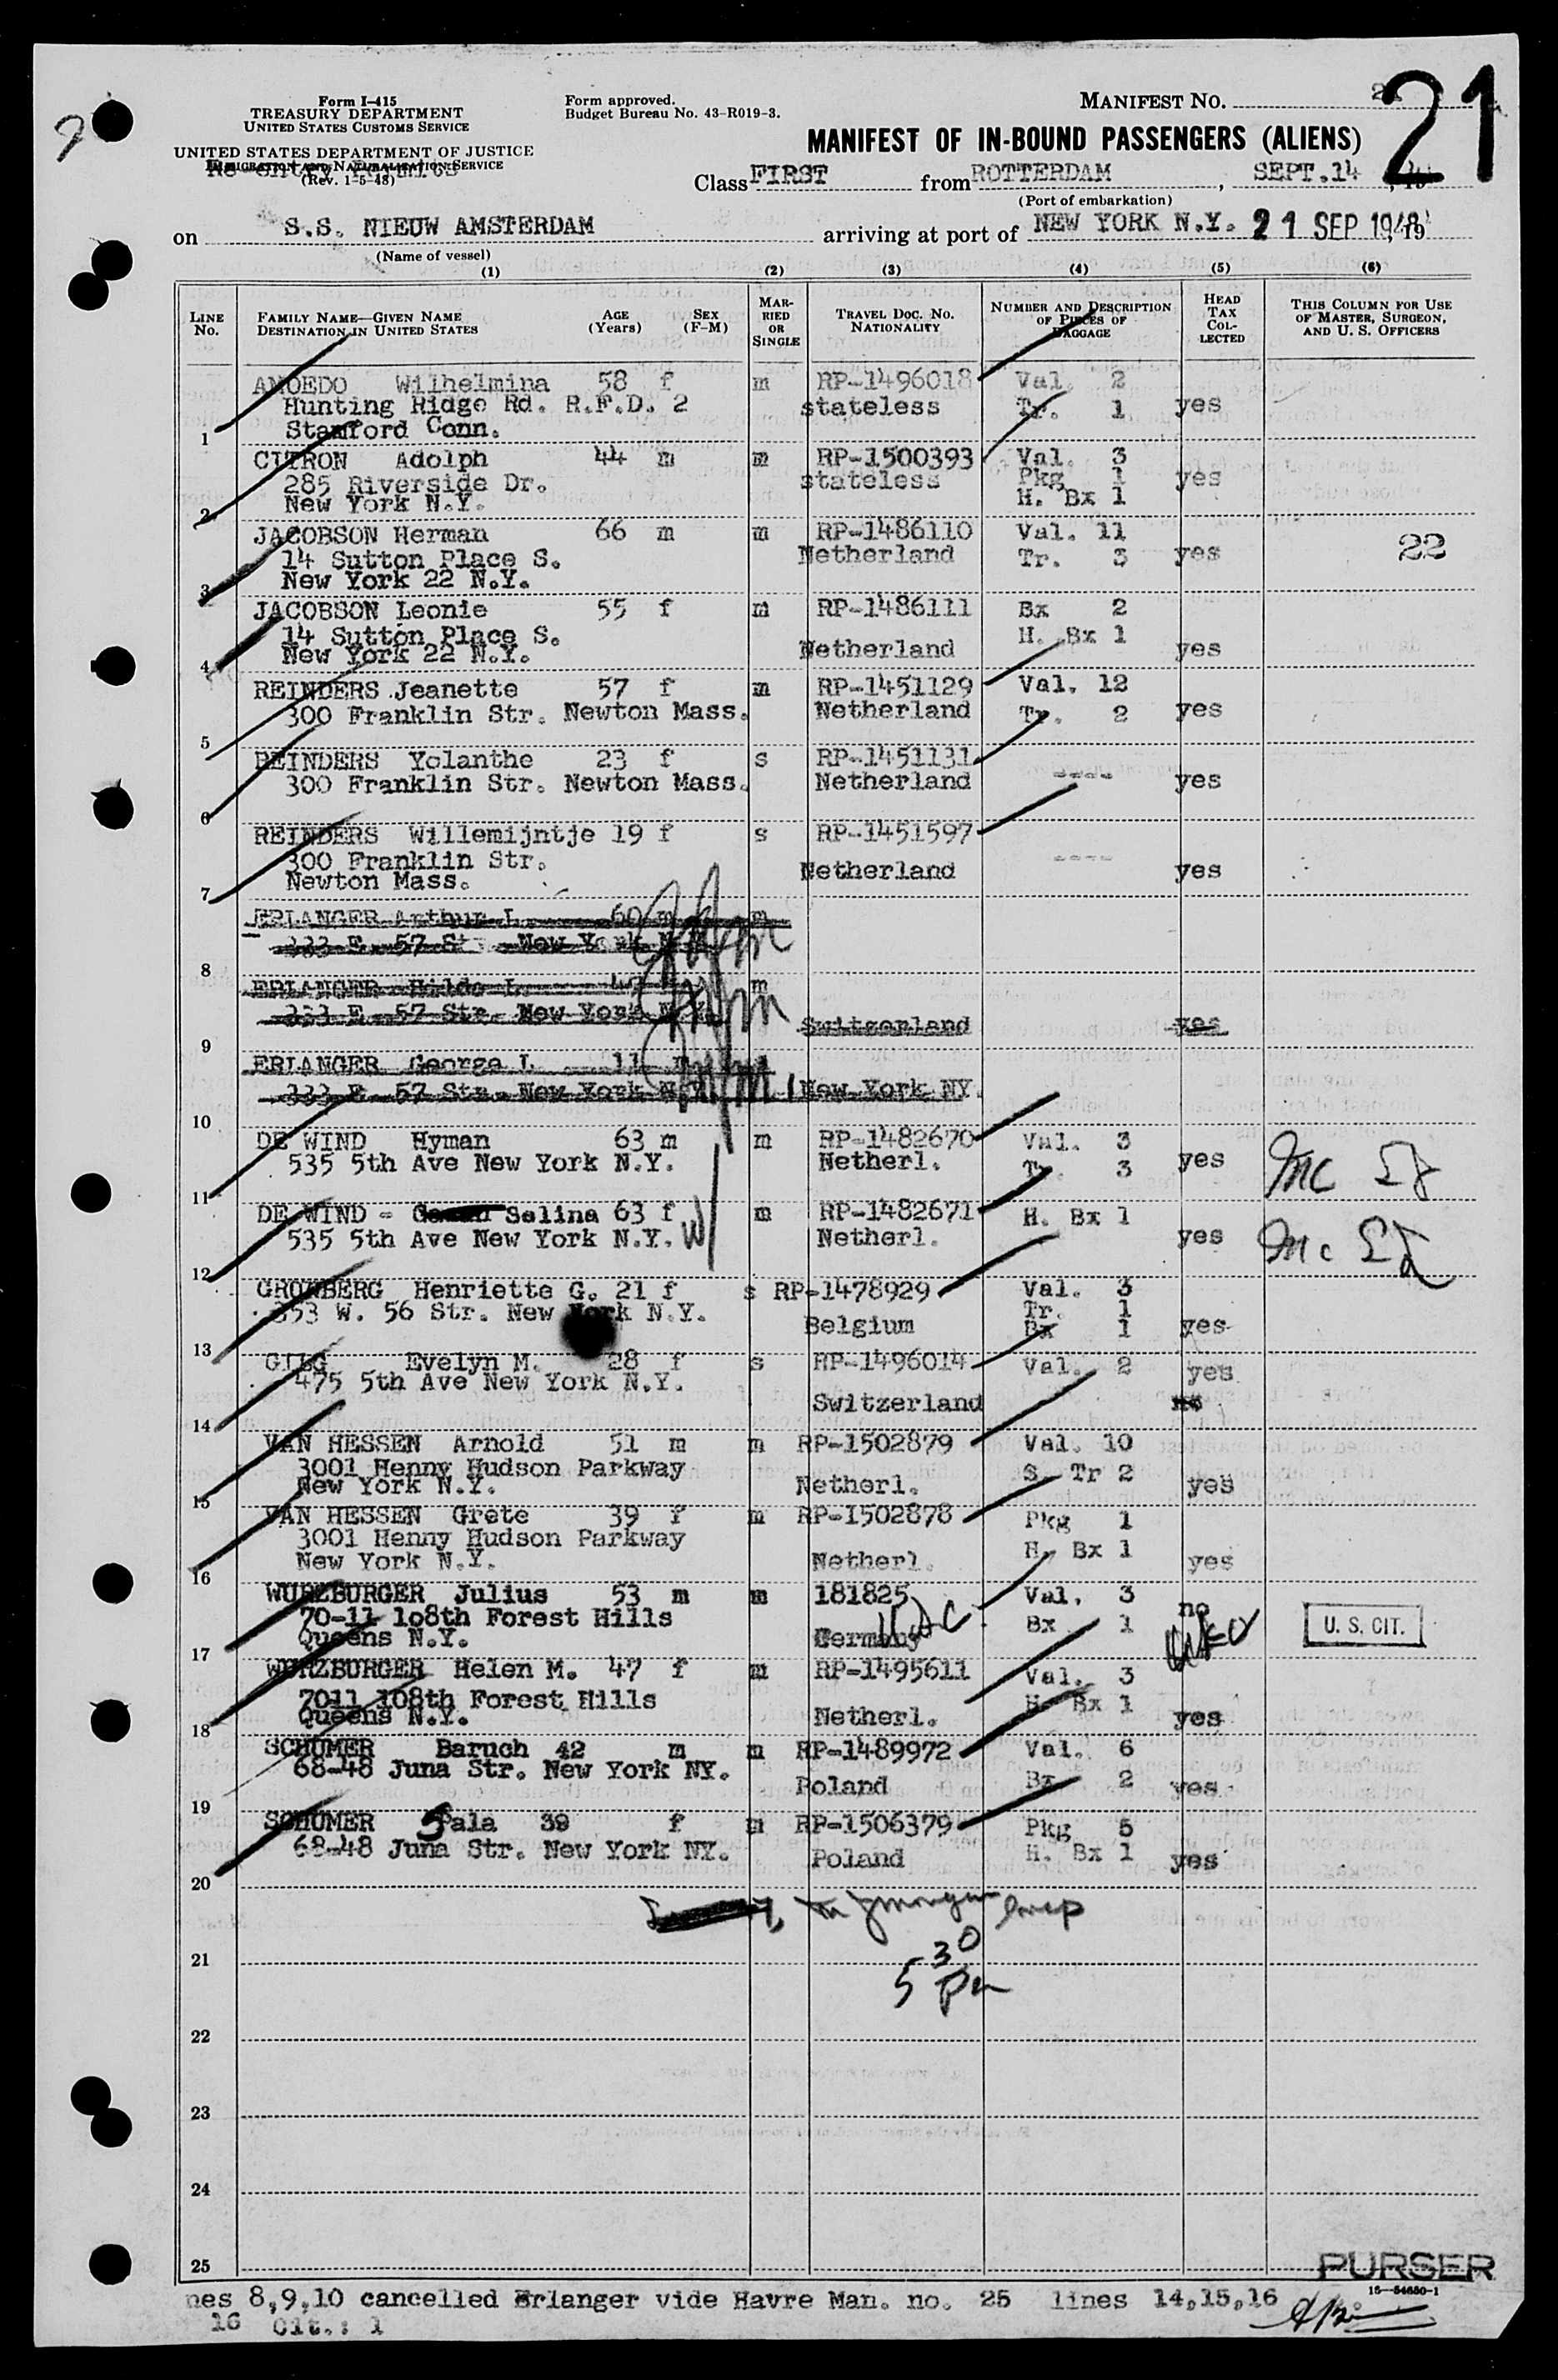 Form I-415
TREASURY DEPARTMENT
UNITED STATES CUSTOMS SERVICE
UNITED STATES DEPARTMENT OF JUSTICE
IMMIGRATION AND NATURALIZATION SERVICE
Re-entry Permits
(Rev. 1-5-48)
Form approved.
Budget Bureau No. 43-R019-3.
MANIFEST NO. 21
21
MANIFEST OF IN-BOUND PASSENGERS (ALIENS)
Class FIRST from ROTTERDAM, SEPT.14
(Port of embarkation)
on S.S. NIEUW AMSTERDAM arriving at port of NEW YORK N.Y. 21 SEP 1948, 19
(Name of vessel)
(1) (2) (3) (4) (5) (6)
LINE No. FAMILY NAME—GIVEN NAME DESTINATION IN UNITED STATES AGE (Years) SEX (F-M) MARRIED OR SINGLE TRAVEL DOC. NO. NATIONALITY NUMBER AND DESCRIPTION OF PIECES OF BAGGAGE HEAD TAX COLLECTED THIS COLUMN FOR USE OF MASTER, SURGEON, AND U. S. OFFICERS
AMOEDO Wilhelmina 58 f m RP-1496018 Val. 2
Hunting Ridge Rd. R.F.D. 2 stateless Tr. 1 yes
1 Stamford Conn.
CITRON Adolph 44 m m RP-1500393 Val. 3
285 Riverside Dr. stateless Pkg 1 yes
2 New York N.Y. H. Bx 1
JACOBSON Herman 66 m m RP-1486110 Val. 11
14 Sutton Place S. Netherland Tr. 3 yes 22
3 New York 22 N.Y.
JACOBSON Leonie 55 f m RP-1486111 Bx 2
14 Sutton Place S. H. Bx 1
4 New York 22 N.Y. Netherland yes
REINDERS Jeanette 57 f m RP-1451129 Val. 12
300 Franklin Str. Newton Mass. Netherland Tr. 2 yes
5
REINDERS Yolanthe 23 f s RP-1451131
300 Franklin Str. Newton Mass. Netherland ---- yes
6
REINDERS Willemijntje 19 f s RP-1451597
300 Franklin Str. ----
7 Newton Mass. Netherland yes
ERLANGER Arthur L. 60 m m
333 E. 57 Str. New York N.Y.
8
ERLANGER Hilde L. 47 m
333 E. 57 Str. New York N.Y. Switzerland yes
9
ERLANGER George L 11 m
333 E. 57 Str. New York N.Y. New York NY.
10
DE WIND Hyman 63 m m RP-1482670 Val. 3
535 5th Ave New York N.Y. Netherl. Tr. 3 yes
11
DE WIND - Selina 63 f m RP-1482671 H. Bx 1
535 5th Ave New York N.Y. Netherl. yes
12
GRONBERG Henriette G. 21 f s RP-1478929 Val. 3
353 W. 56 Str. New York N.Y. Tr. 1
13 Belgium Bx 1 yes
GILG Evelyn M. 28 f s RP-1496014 Val. 2 yes
475 5th Ave New York N.Y.
14 Switzerland
VAN HESSEN Arnold 51 m m RP-1502879 Val. 10
3001 Henny Hudson Parkway S. Tr 2
15 New York N.Y. Netherl. yes
VAN HESSEN Grete 39 f m RP-1502878 Pkg 1
3001 Henny Hudson Parkway H. Bx 1
16 New York N.Y. Netherl. yes
WURZBURGER Julius 53 m m 181825 Val. 3 no
70-11 108th Forest Hills Bx 1 U. S. CIT.
17 Queens N.Y. Germany
WURZBURGER Helen M. 47 f m RP-1495611 Val. 3
7011 108th Forest Hills H. Bx 1
18 Queens N.Y. Netherl. yes
SCHUMER Baruch 42 m m RP-1489972 Val. 6
68-48 Juna Str. New York NY. Poland Bx 2 yes
19
SCHUMER Sala 39 f m RP-1506379 Pkg 5
68-48 Juna Str. New York NY. Poland H. Bx 1 yes
20
5 30
pm
21
22
23
24
25
PURSER
16-54650-1
nes 8,9,10 cancelled Erlanger vide Havre Man. no. 25 lines 14,15,16
16 Cit.: 1